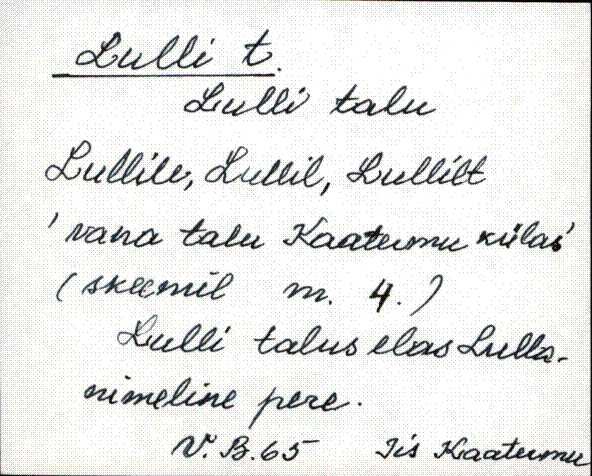 Lulli t.
Lulli talu
Lullile, Lullil, Lullilt
'vana talu Kaatermu külas'
(skeemil m. 4.)
Lulli talus elas Lulla-
nimeline pere.
V. B. 65 Iis Kaatermu